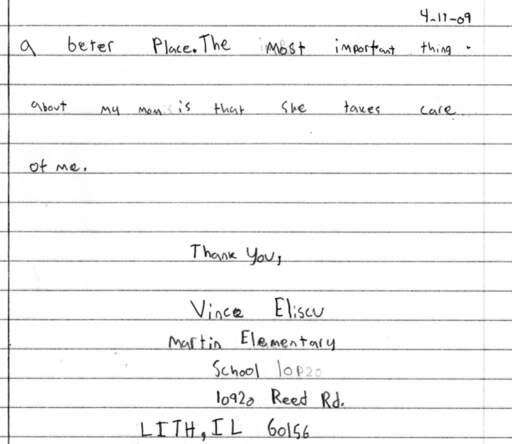 4-11-09
a beter Place. The most important thing
about my mom is that she takes care
of me.
Thank You,
Vince Eliscu
Martin Elementary
School
10920 Reed Rd.
LITH, IL 60156